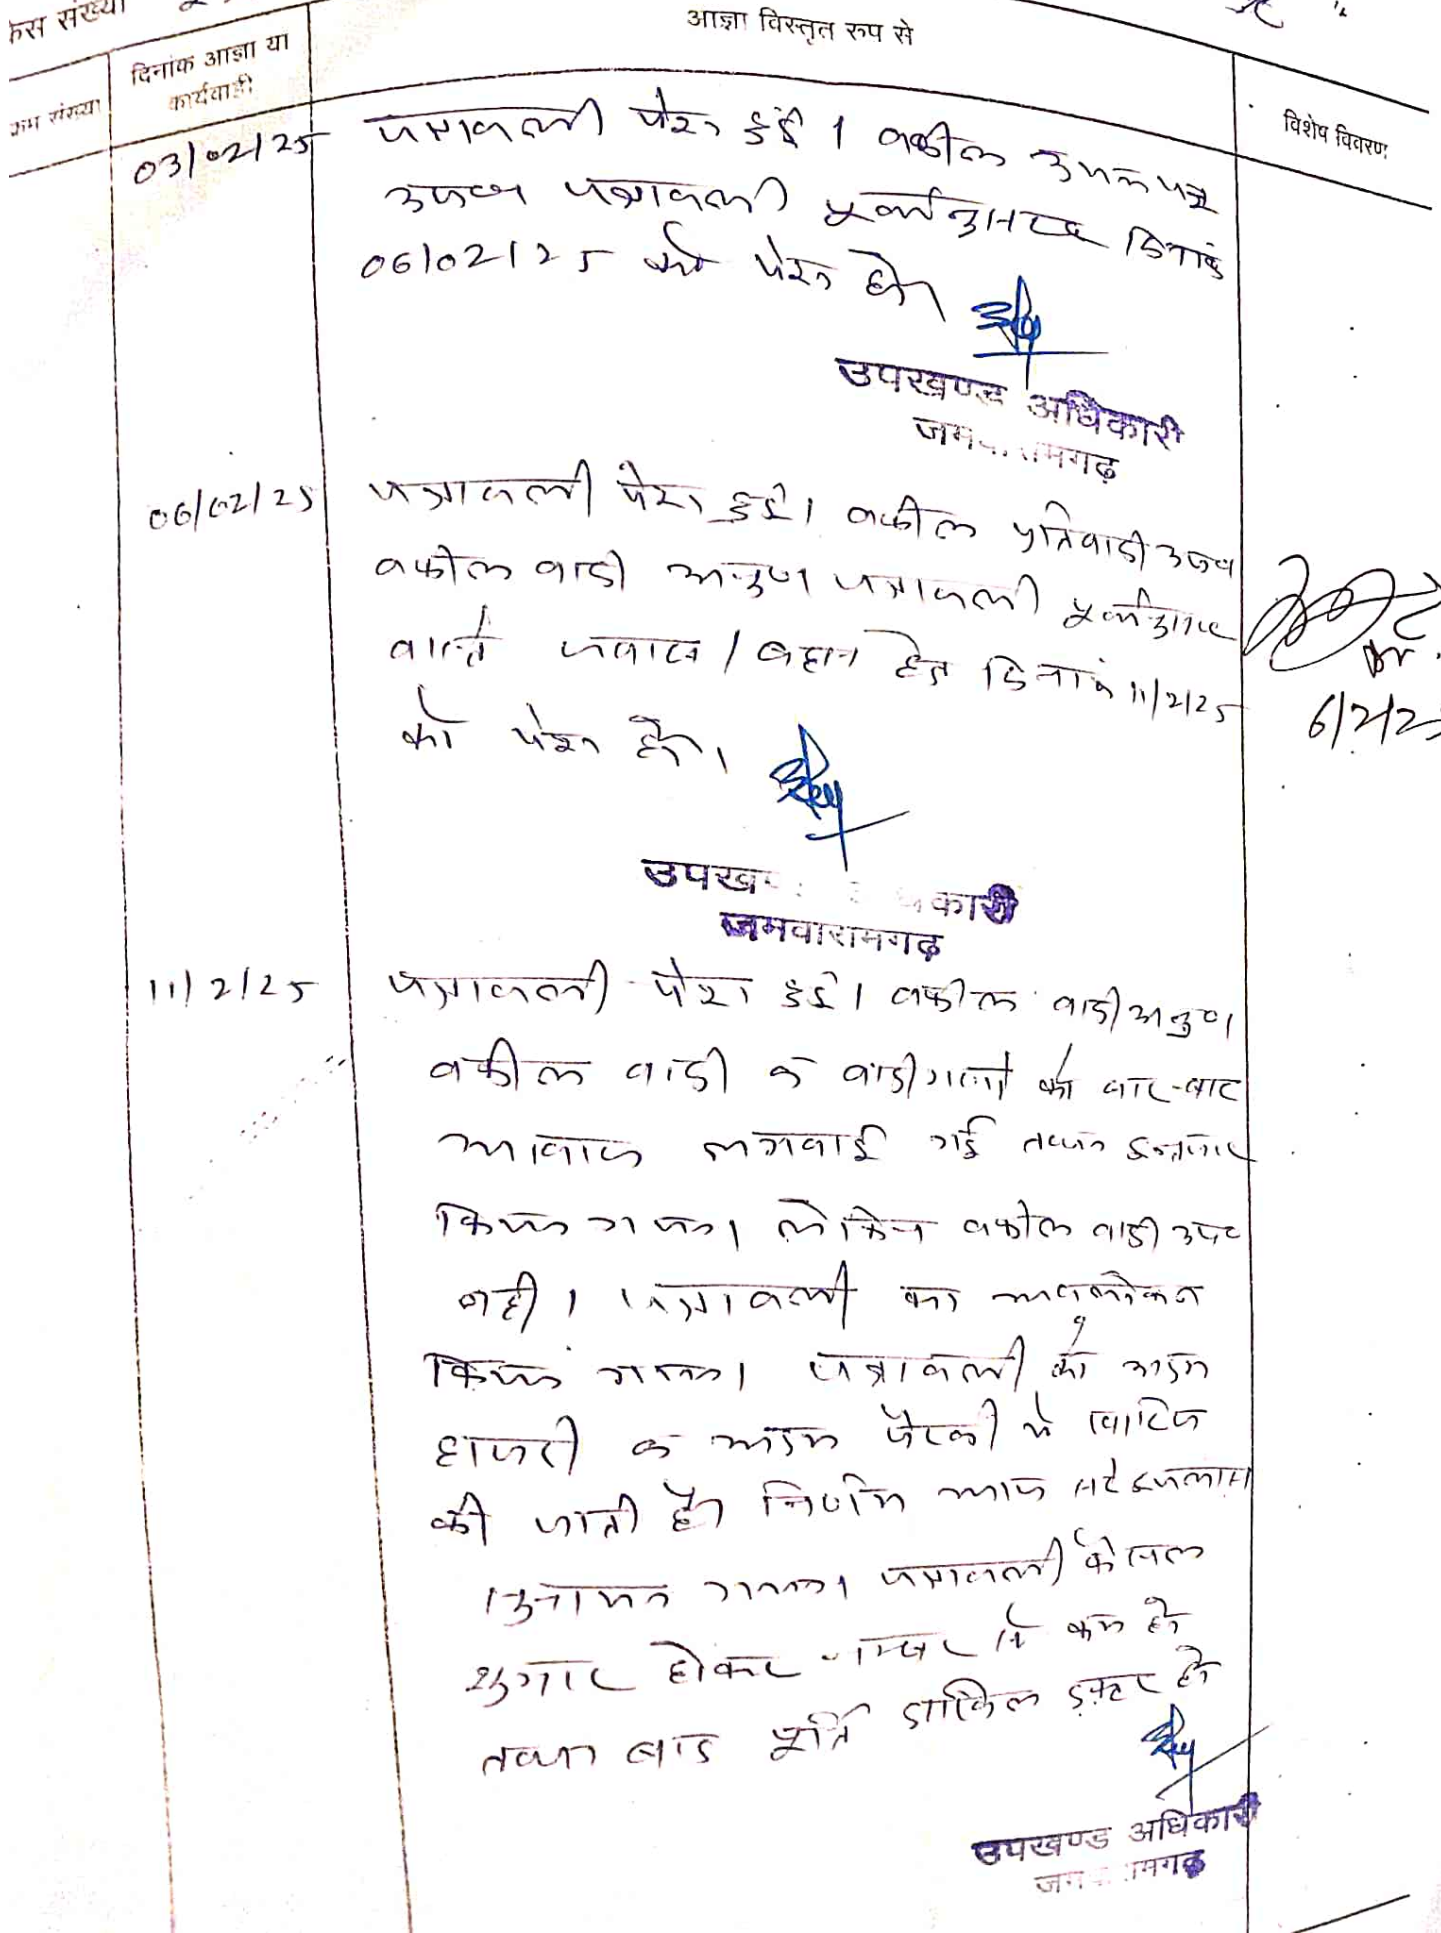 केस संख्या
आज्ञा विस्तृत रुप से
क्रम संख्या
दिनांक आज्ञा या
कार्यवाही
विशेष विवरण
03/02/25
पत्रावली पेश हुई । वकील उभयपक्ष
उपस्थ पत्रावली पूर्वानुसार दिनांक
06/02/25 को पेश हो।
उपखण्ड अधिकारी
जम रामगढ़
06/02/25
पत्रावली पेश हुई। वकील प्रतिवादी उपस्थ
वकील वादी अनुप० पत्रावली पूर्वानुसार
वास्ते जवाब / बहस हेतु दिनांक 11/2/25
को पेश हो।
6/2/25
उपख कारी
जमवारामगढ़
11/2/25
पत्रावली पेश हुई। वकील वादी अनुप०।
वकील वादी व वादीगणों को बार-बार
आवाज लगवाई गई तथा इन्तजार
किया गया। लेकिन वकील वादी उप०
नही। पत्रावली का अवलोकन
किया गया। पत्रावली को अदम
हाजरी व अदम पैरवी में खारिज
की जाती है। निर्णय आज सरे इजलास
सुनाया गया। पत्रावली फैसल
शुमार होकर नम्बर से कम हो
तथा बाद पूर्ति दाखिल दफ्तर हो
उपखण्ड अधिकारी
जम रामगढ़